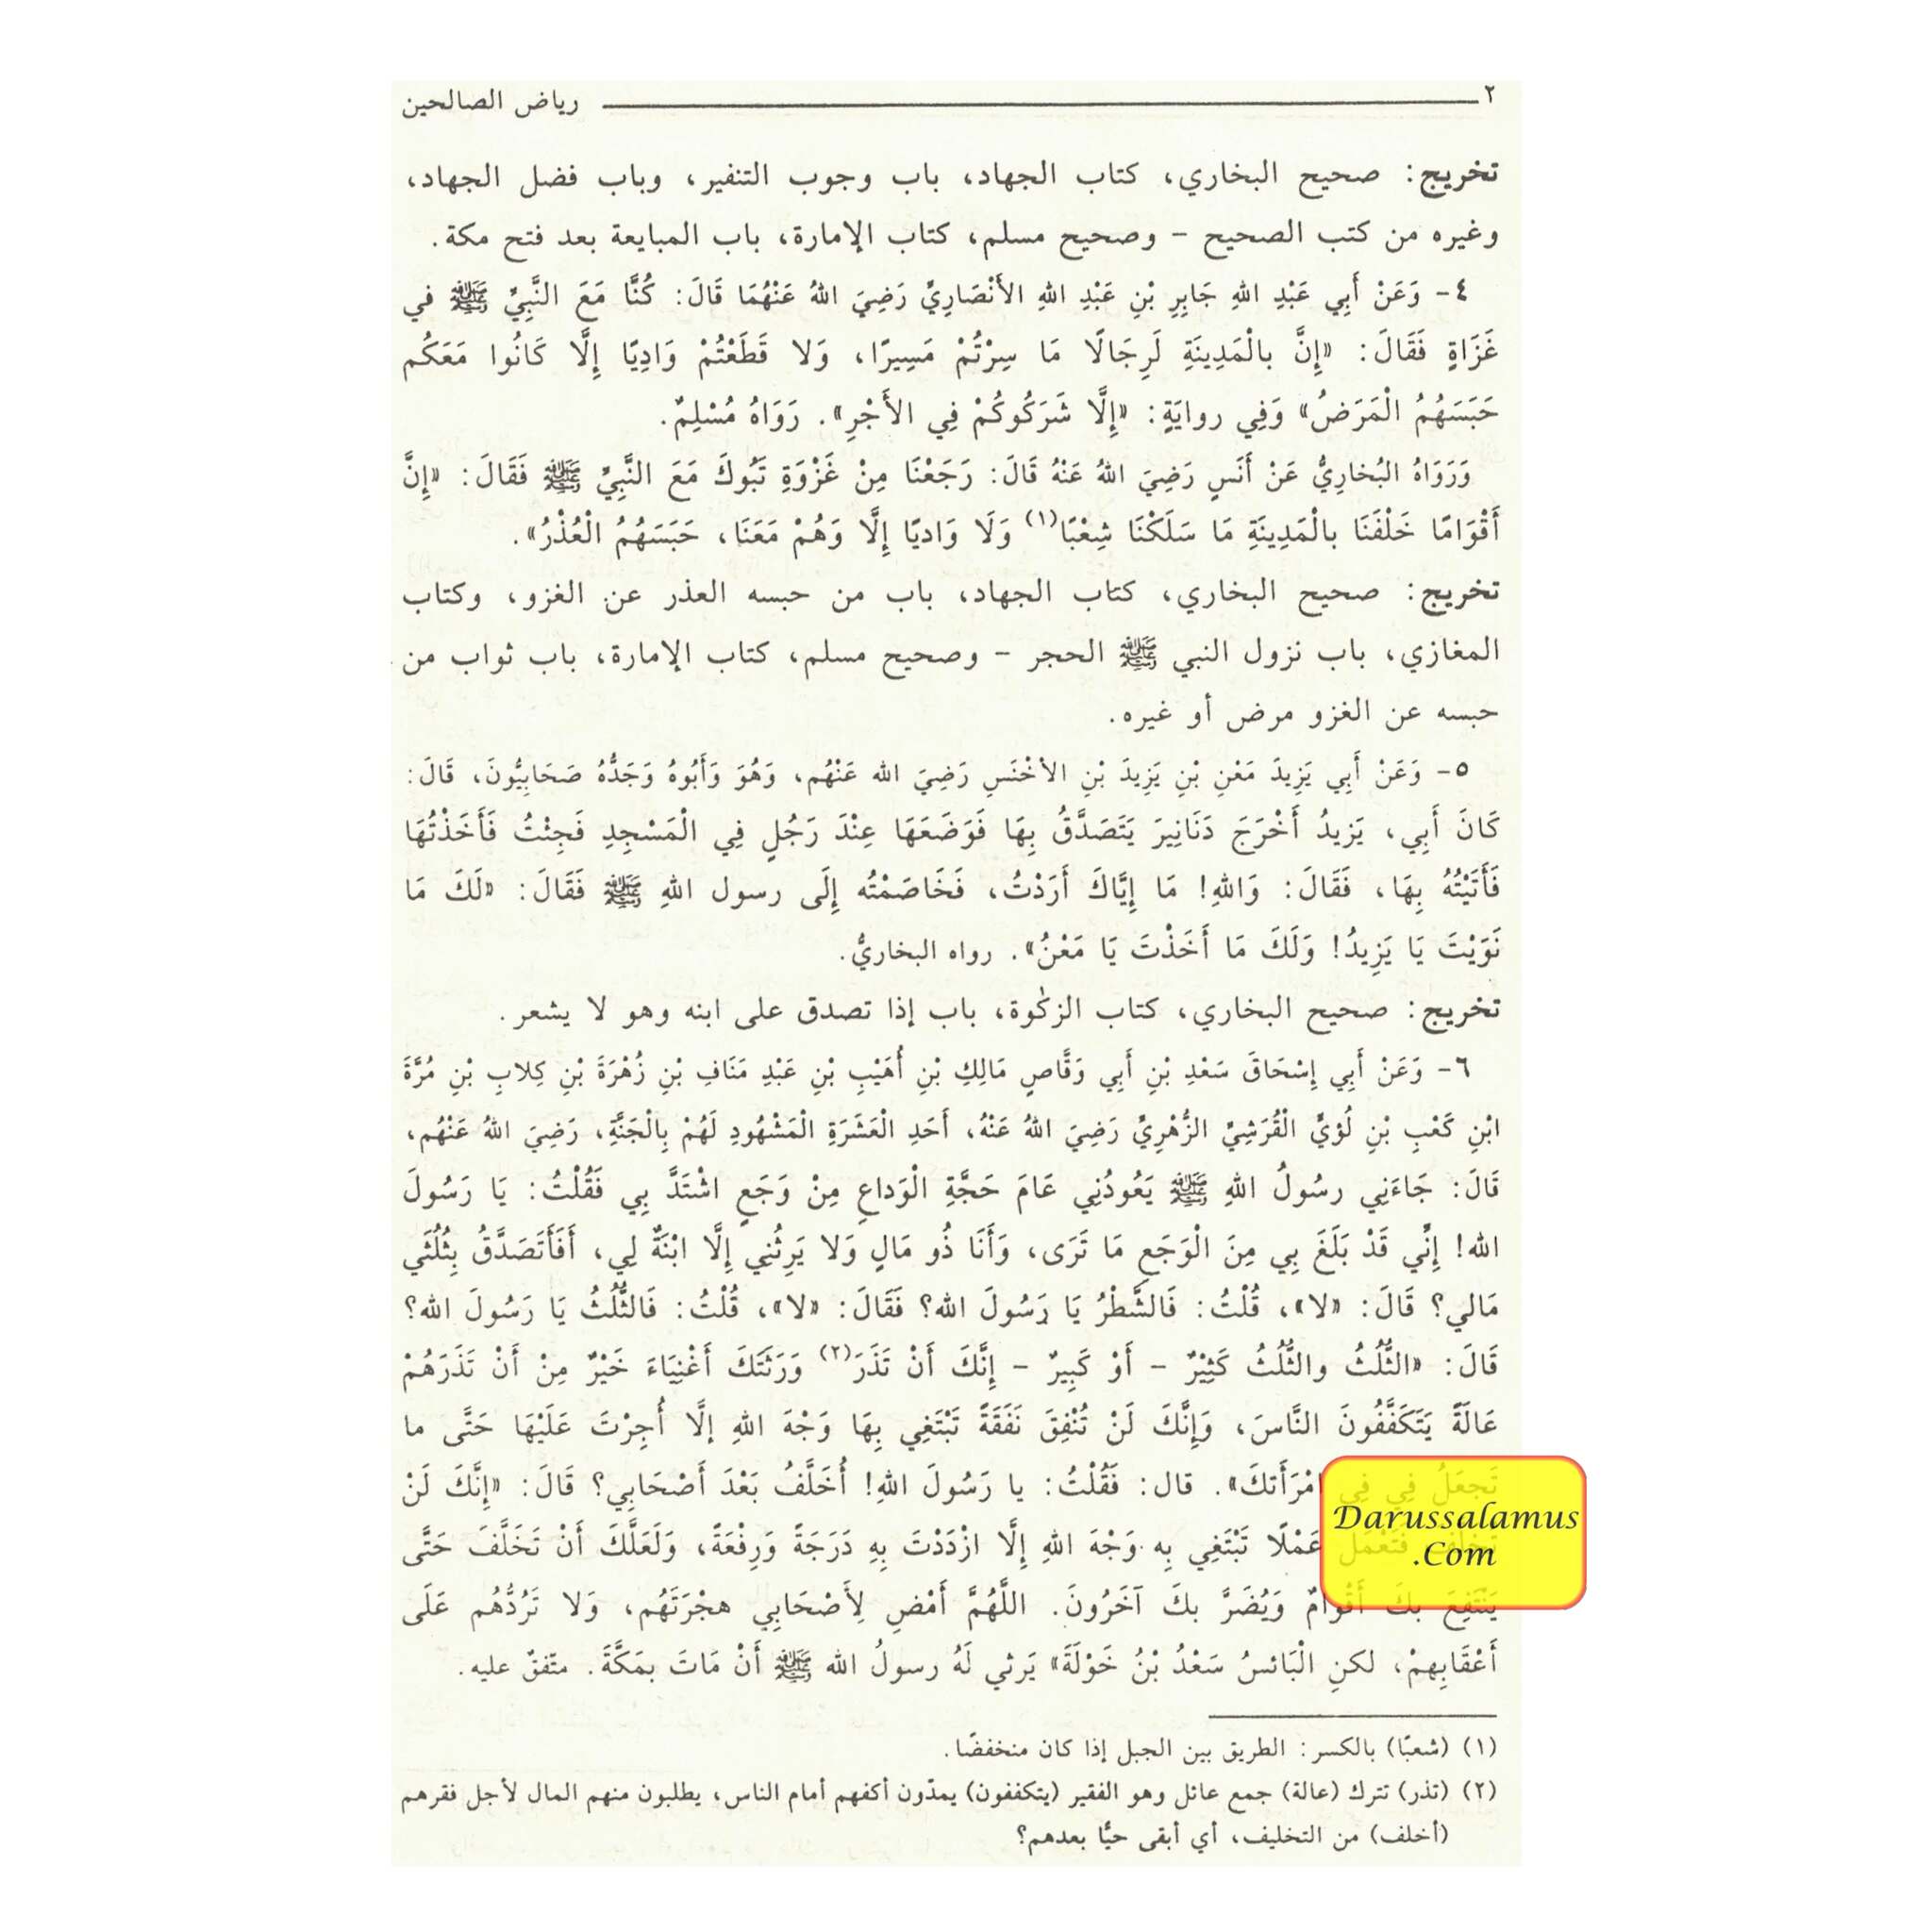 ٢ رياض الصالحين
تخريج: صحيح البخاري، كتاب الجهاد، باب وجوب التنفير، وباب فضل الجهاد،
وغيره من كتب الصحيح – وصحيح مسلم، كتاب الإمارة، باب المبايعة بعد فتح مكة.
٤– وَعَنْ أَبِي عَبْدِ اللهِ جَابِرِ بْنِ عَبْدِ اللهِ الأَنْصَارِيِّ رَضِيَ اللهُ عَنْهُمَا قَالَ: كُنَّا مَعَ النَّبِيِّ ﷺ في
غَزَاةٍ فَقَالَ: «إِنَّ بالْمَدِينَةِ لَرِجَالًا مَا سِرْتُمْ مَسِيرًا، وَلا قَطَعْتُمْ وَادِيًا إِلَّا كَانُوا مَعَكُم
حَبَسَهُمُ الْمَرَضُ» وَفِي روايَةٍ: «إِلَّا شَرَكُوكُمْ فِي الأَجْرِ». رَوَاهُ مُسْلِمٌ.
وَرَوَاهُ البُخارِيُّ عَنْ أَنَسٍ رَضِيَ اللهُ عَنْهُ قَالَ: رَجَعْنَا مِنْ غَزْوَةِ تَبُوكَ مَعَ النَّبِيِّ ﷺ فَقَالَ: «إِنَّ
أَقْوَامًا خَلْفَنَا بالْمَدِينَةِ مَا سَلَكْنَا شِعْبًا(١) وَلَا وَاديًا إِلَّا وَهُمْ مَعَنَا، حَبَسَهُمُ الْعُذْرُ».
تخريج: صحيح البخاري، كتاب الجهاد، باب من حبسه العذر عن الغزو، وكتاب
المغازي، باب نزول النبي ﷺ الحجر – وصحيح مسلم، كتاب الإمارة، باب ثواب من
حبسه عن الغزو مرض أو غيره.
٥– وَعَنْ أَبِي يَزِيدَ مَعْنِ بْنِ يَزِيدَ بْنِ الأخْنَسِ رَضِيَ الله عَنْهُم، وَهُوَ وَأَبُوهُ وَجَدُّهُ صَحَابِيُّونَ، قَالَ:
كَانَ أَبِي، يَزِيدُ أَخْرَجَ دَنَانِيرَ يَتَصَدَّقُ بِهَا فَوَضَعَهَا عِنْدَ رَجُلٍ فِي الْمَسْجِدِ فَجِئْتُ فَأَخَذْتُهَا
فَأَتَيْتُهُ بِهَا، فَقَالَ: وَاللهِ! مَا إِيَّاكَ أَرَدْتُ، فَخَاصَمْتُه إِلَى رسول اللهِ ﷺ فَقَالَ: «لَكَ مَا
نَوَيْتَ يَا يَزِيدُ! وَلَكَ مَا أَخَذْتَ يَا مَعْنُ». رواه البخاريُّ.
تخريج: صحيح البخاري، كتاب الزكٰوة، باب إذا تصدق على ابنه وهو لا يشعر.
٦– وَعَنْ أَبِي إِسْحَاقَ سَعْدِ بْنِ أَبِي وَقَّاصٍ مَالِكِ بْنِ أُهَيْبِ بْنِ عَبْدِ مَنَافِ بْنِ زُهْرَةَ بْنِ كِلابِ بْنِ مُرَّةَ
ابْنِ كَعْبِ بْنِ لُؤيٍّ الْقُرَشِيِّ الزُّهْرِيِّ رَضِيَ اللهُ عَنْهُ، أَحَدِ الْعَشَرَةِ الْمَشْهُودِ لَهُمْ بِالْجَنَّةِ، رَضِيَ اللهُ عَنْهُم،
قَالَ: جَاءَنِي رسُولُ اللهِ ﷺ يَعُودُنِي عَامَ حَجَّةِ الْوَداعِ مِنْ وَجَعٍ اشْتَدَّ بِي فَقُلْتُ: يَا رَسُولَ
الله! إِنِّي قَدْ بَلَغَ بِي مِنَ الْوَجَعِ مَا تَرَى، وَأَنَا ذُو مَالٍ وَلا يَرِثُنِي إِلَّا ابْنَةٌ لِي، أَفَأَتَصَدَّقُ بِثُلُثَي
مَالي؟ قَالَ: «لا»، قُلْتُ: فَالشَّطْرُ يَا رَسُولَ الله؟ فَقَالَ: «لا»، قُلْتُ: فَالثُّلُثُ يَا رَسُولَ الله؟
قَالَ: «الثُّلُثُ والثُّلُثُ كَثِيْرٌ – أَوْ كَبِيرٌ – إِنَّكَ أَنْ تَذَرَ(٢) وَرَثَتَكَ أَغْنِيَاءَ خَيْرٌ مِنْ أَنْ تَذَرَهُمْ
عَالَةً يَتَكَفَّفُونَ النَّاسَ، وَإِنَّكَ لَنْ تُنْفِقَ نَفَقَةً تَبْتَغِي بِهَا وَجْهَ اللهِ إلَّا أُجِرْتَ عَلَيْهَا حَتَّى ما
تَجعَلُ فِي فِي امْرَأَتكَ». قال: فَقُلْتُ: يا رَسُولَ اللهِ! أُخَلَّفُ بَعْدَ أَصْحَابِي؟ قَالَ: «إِنَّكَ لَنْ
تُخَلَّفَ فَتَعْمَلَ عَمْلًا تَبْتَغِي بِه وَجْهَ اللهِ إِلَّا ازْدَدْتَ بِهِ دَرَجَةً وَرِفْعَةً، وَلَعَلَّكَ أَنْ تَخَلَّفَ حَتَّى
يَنْتَفِعَ بكَ أَقْوامٌ وَيُضَرَّ بكَ آخَرُونَ. اللَّهُمَّ أَمْضِ لِأَصْحَابِي هجْرَتَهُم، وَلا تَرُدُّهُم عَلَى
أَعْقَابِهمْ، لكنِ الْبَائسُ سَعْدُ بْنُ خَوْلَةَ» يَرثي لَهُ رسولُ الله ﷺ أَنْ مَاتَ بمَكَّةَ. متّفقٌ عليه.
(١) (شعبًا) بالكسر: الطريق بين الجبل إذا كان منخفضًا.
(٢) (تذر) تترك (عالة) جمع عائل وهو الفقير (يتكففون) يمدّون أكفهم أمام الناس، يطلبون منهم المال لأجل فقرهم
(أخلف) من التخليف، أي أبقى حيًّا بعدهم؟
Darussalamus
.Com